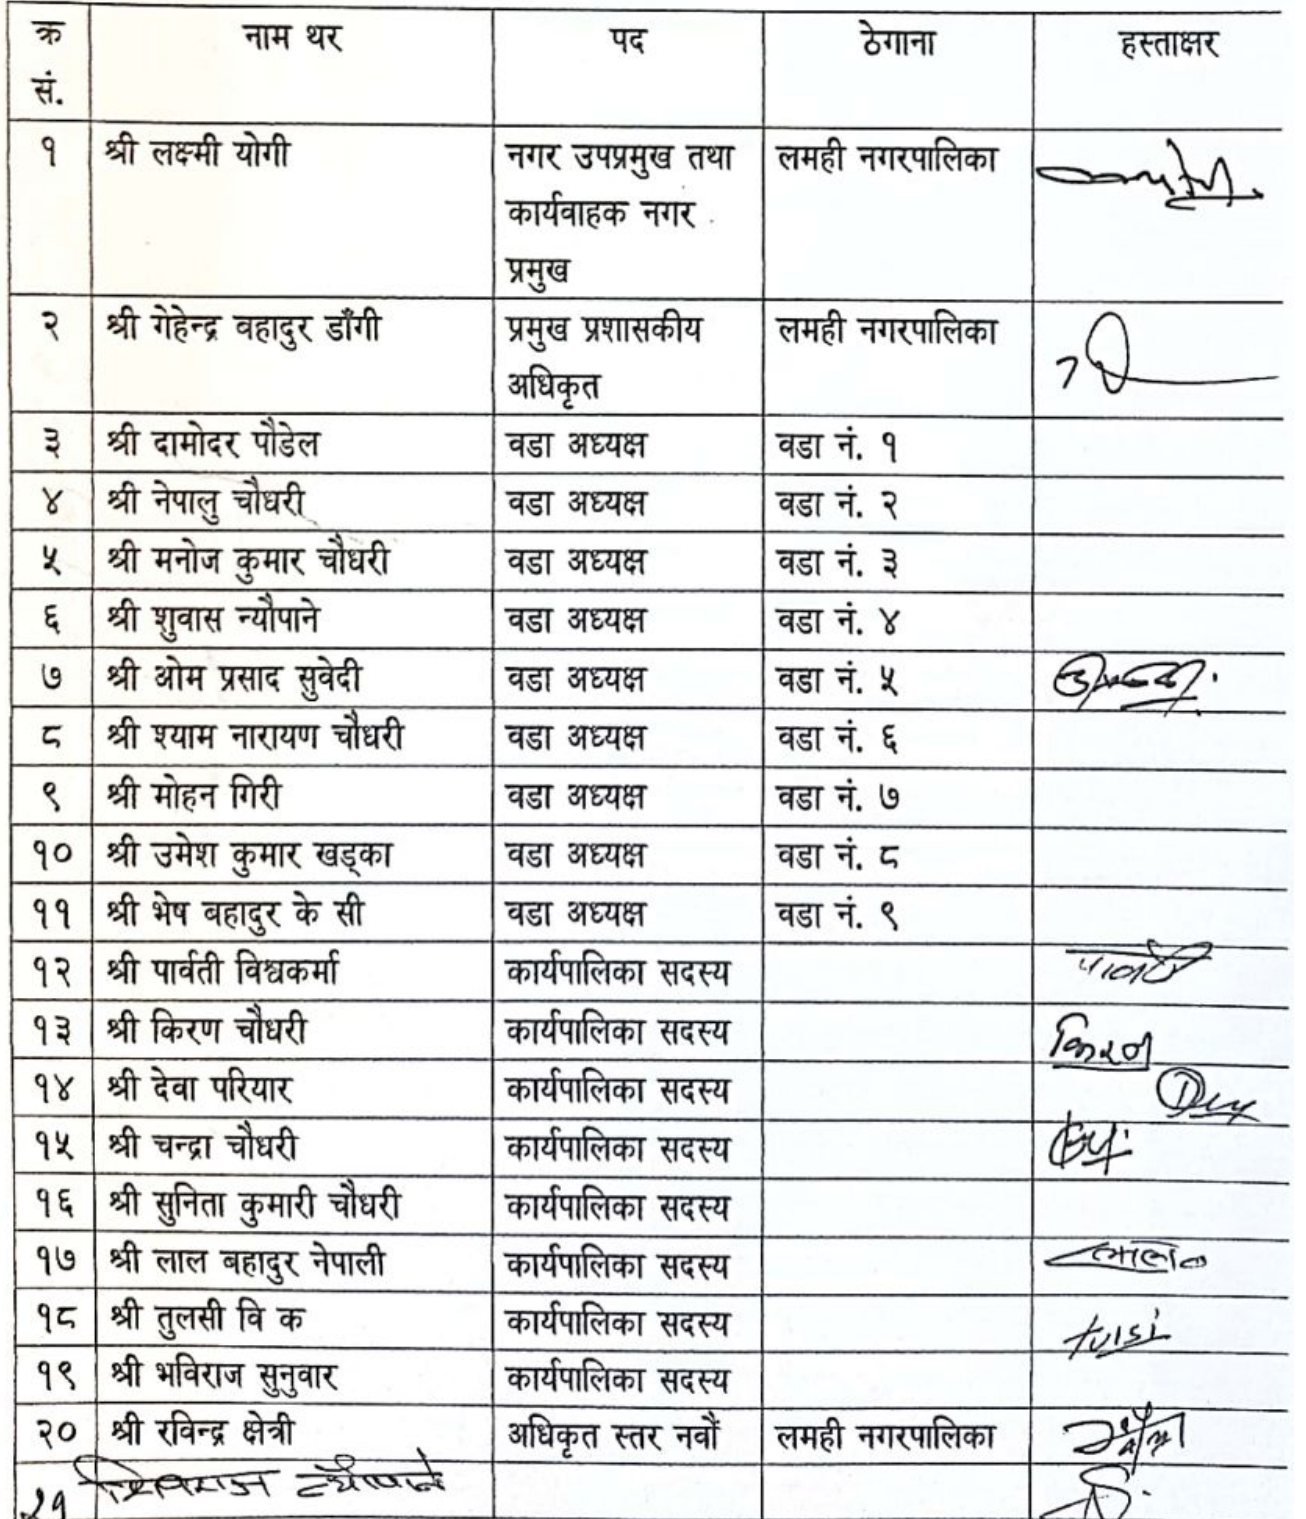 क्र सं. नाम थर पद ठेगाना हस्ताक्षर
१ श्री लक्ष्मी योगी नगर उपप्रमुख तथा कार्यवाहक नगर प्रमुख लमही नगरपालिका
२ श्री गेहेन्द्र वहादुर डाँगी प्रमुख प्रशासकीय अधिकृत लमही नगरपालिका
३ श्री दामोदर पौडेल वडा अध्यक्ष वडा नं. १
४ श्री नेपालु चौधरी वडा अध्यक्ष वडा नं. २
५ श्री मनोज कुमार चौधरी वडा अध्यक्ष वडा नं. ३
६ श्री शुवास न्यौपाने वडा अध्यक्ष वडा नं. ४
७ श्री ओम प्रसाद सुवेदी वडा अध्यक्ष वडा नं. ५
८ श्री श्याम नारायण चौधरी वडा अध्यक्ष वडा नं. ६
९ श्री मोहन गिरी वडा अध्यक्ष वडा नं. ७
१० श्री उमेश कुमार खड्का वडा अध्यक्ष वडा नं. ८
११ श्री भेष बहादुर के सी वडा अध्यक्ष वडा नं. ९
१२ श्री पार्वती विश्वकर्मा कार्यपालिका सदस्य
१३ श्री किरण चौधरी कार्यपालिका सदस्य किरण
१४ श्री देवा परियार कार्यपालिका सदस्य
१५ श्री चन्द्रा चौधरी कार्यपालिका सदस्य
१६ श्री सुनिता कुमारी चौधरी कार्यपालिका सदस्य
१७ श्री लाल बहादुर नेपाली कार्यपालिका सदस्य
१८ श्री तुलसी वि क कार्यपालिका सदस्य tulsi
१९ श्री भविराज सुनुवार कार्यपालिका सदस्य
२० श्री रविन्द्र क्षेत्री अधिकृत स्तर नवौं लमही नगरपालिका
२१ न्यौपाने